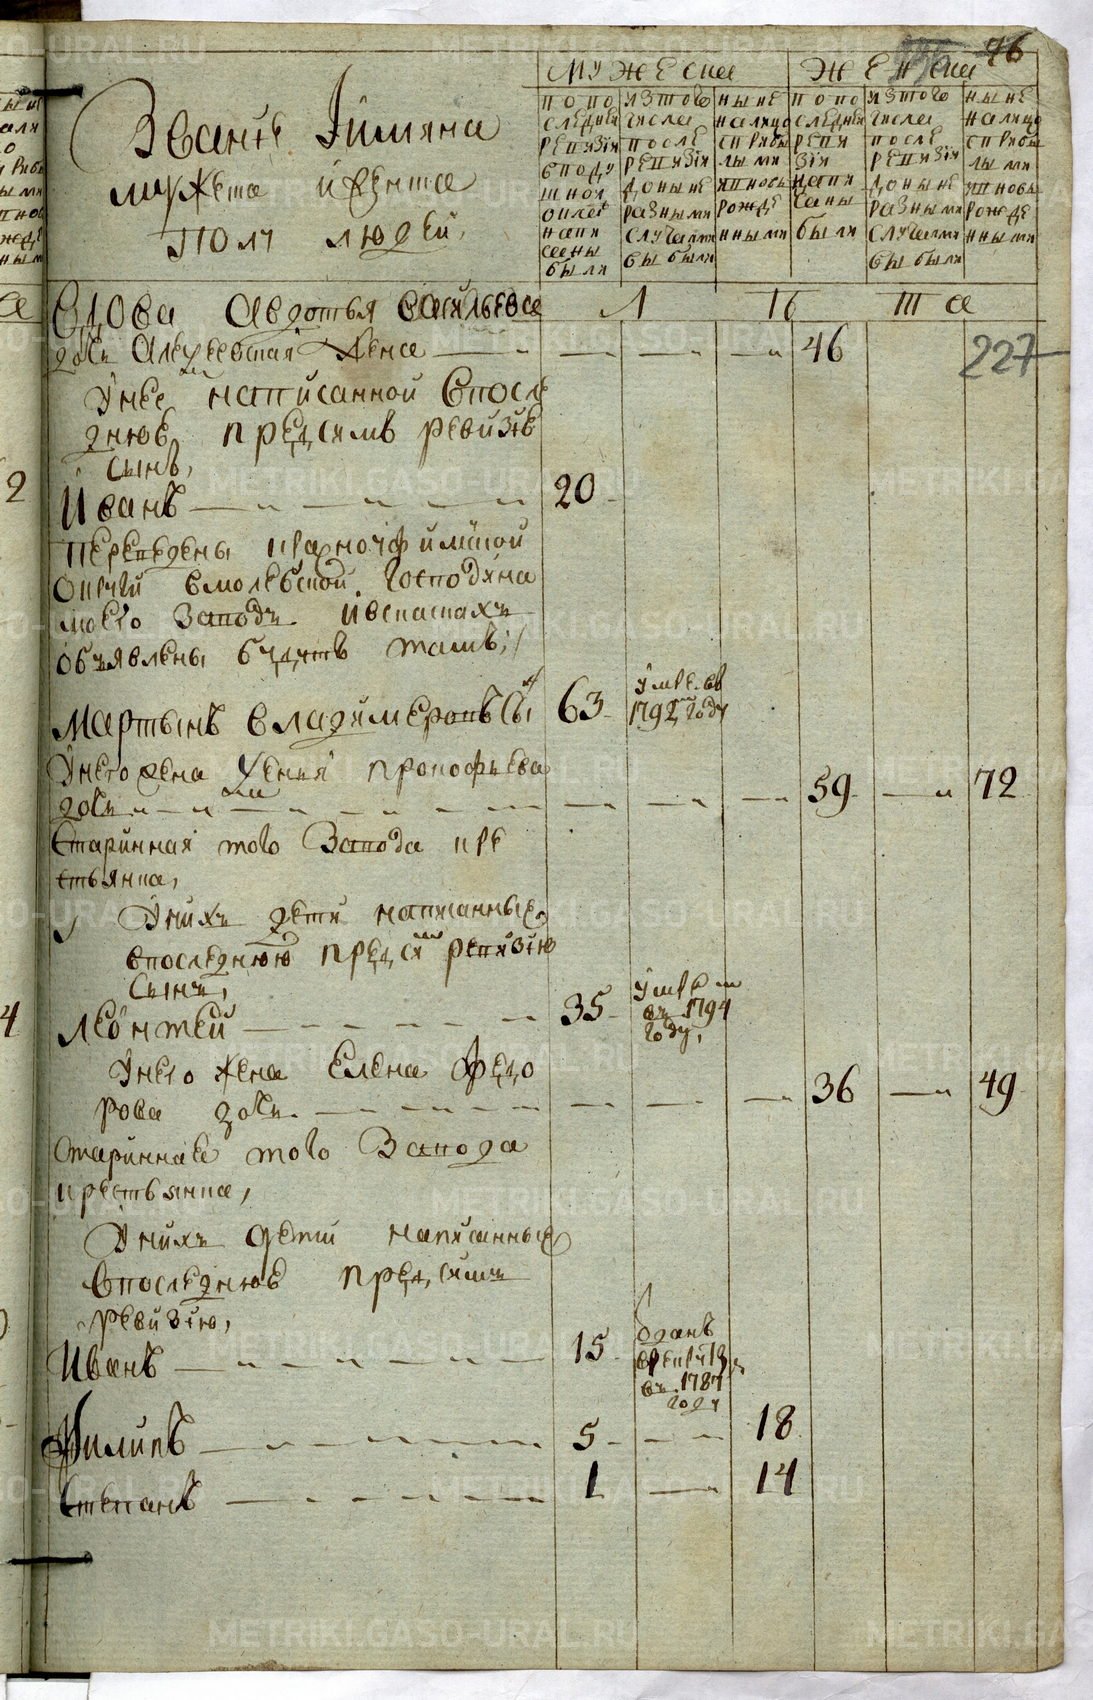 76
Званїе Їимяна
мужеска иженска
полу людей,
мужеска
женска
попо следней ревизїи вподушной окладъ написаны были
изтого числа после ревизїи доныне разными случаями выбыли
ныне налицо сприбылыми ивновь рожденными
попо следней ревизїи написаны были
изтого числа после ревизїи доныне разными случаями выбыли
ныне налицо сприбылыми ивновь рожденными
Вдова Авдотья васильева
лѣта
дочь Алексеевская жена 46
227
Унее написанной впосле
днюю предсимъ ревизїю
сынъ,
Иванъ 20
переведены
господина
моего заводъ ивсказкахъ
объявлены будутъ тамъ;
Мартынъ владимеровъ сы 63
умре въ
1792 году
Унего жена Ксенья прокофьева
дочь 59 72
старинная того Завода кре
стьянка,
Унихъ дети написанныхъ
впоследнюю предсимъ ревизїю
сынъ,
Леонтей 35
умре
въ 1794
году,
Унего жена Елена федо
рова дочь 36 49
стариннаѣ того Завода
крестьянка,
Унихъ дети написанных
впоследнюю предсимъ
ревизїю,
Иванъ 15
отданъ
врекруты
въ 1787
году
Филипъ 5 18
Степанъ 1 14